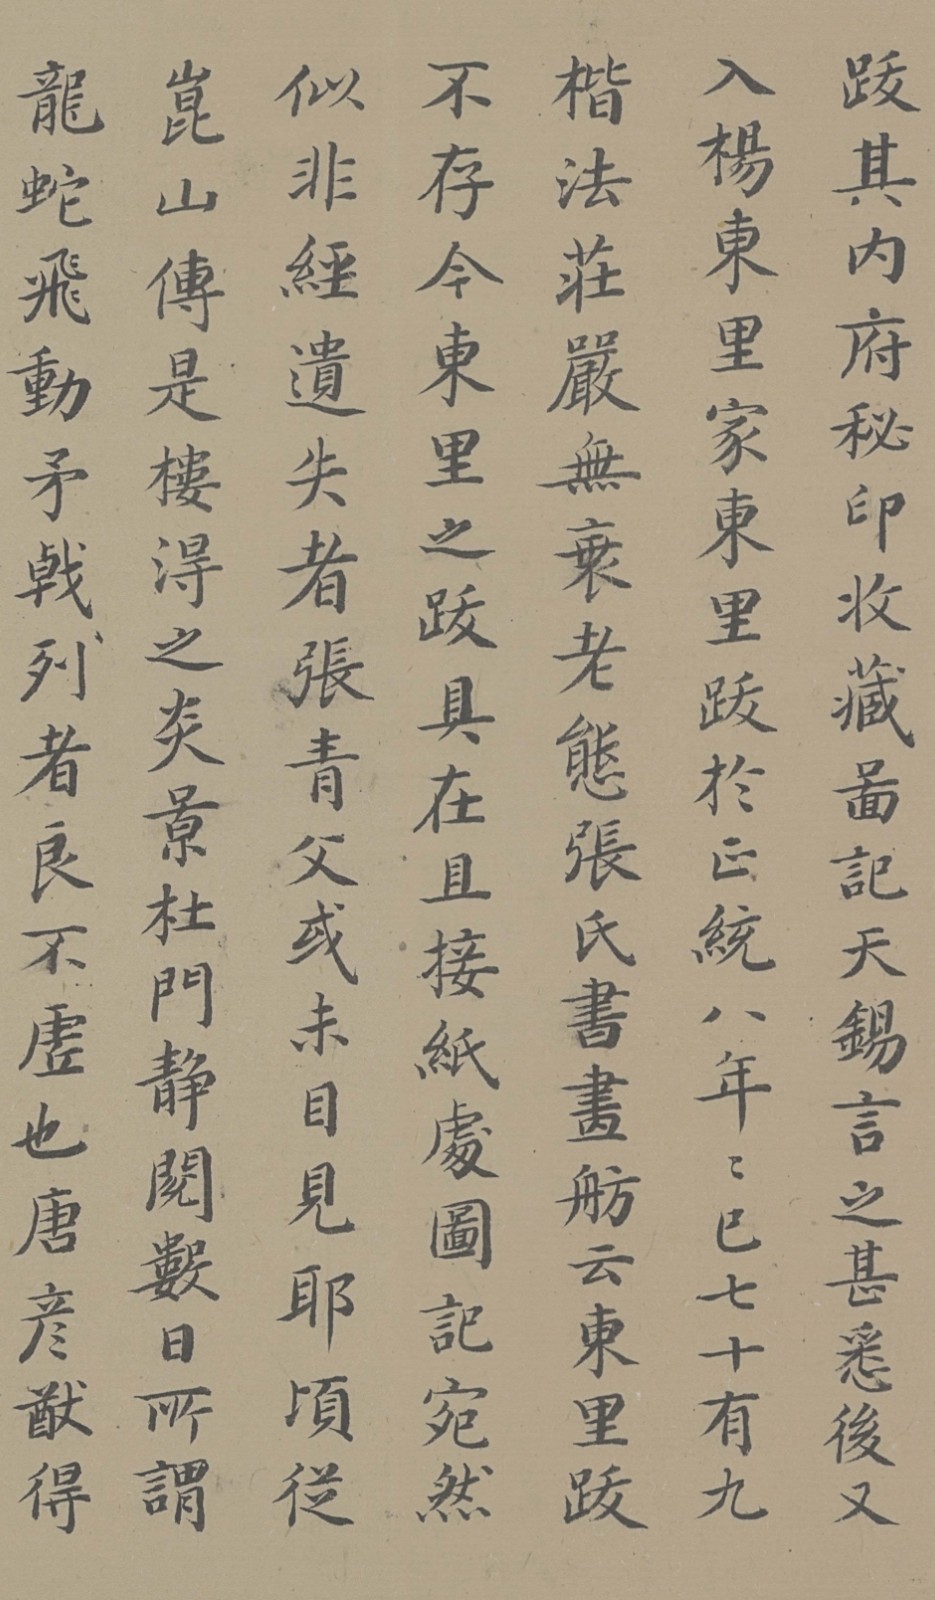 跋其内府秘印收藏啚記天錫言之甚悉後又
入楊東里家東里跋於正統八年〻已七十有九
楷法莊嚴無衰老態張氏書畫舫云東里跋
不存今東里之跋具在且接紙處圖記宛然
似非經遺失者張青父或未目見耶頃從
崑山傳是樓淂之炎景杜門静閱數日所謂
龍蛇飛動矛戟列者良不虗也唐彦猷得